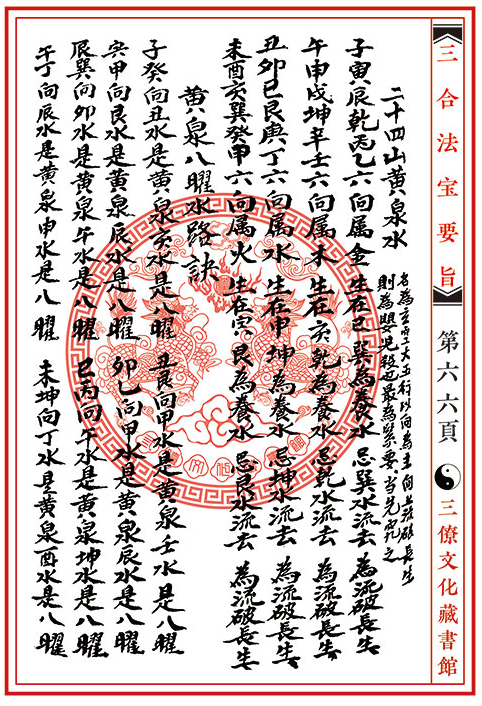 三合法宝要旨
第六六頁
三僚文化藏書館
二十四山黄泉水
名為玄空大五行以向為主向上流破長生
則為嬰兒殺也最為紧要當先究之
子寅辰乾丙乙六向属金 生在巳 巽為養水 忌巽水流去 為流破長生
午申戌坤辛壬六向属木 生在亥 乾為養水 忌乾水流去 為流破長生
丑卯巳艮庚丁六向属水 生在申 坤為養水 忌坤水流去 為流破長生
未酉亥巽癸甲六向属火 生在寅 艮為養水 忌艮水流去 為流破長生
黄泉八曜水路訣
子癸向丑水是黄泉亥水是八曜 丑艮向甲水是黄泉壬水是八曜
寅甲向艮水是黄泉辰水是八曜 卯乙向甲水是黄泉辰水是八曜
辰巽向卯水是黄泉午水是八曜 巳丙向午水是黄泉坤水是八曜
午丁向辰水是黄泉申水是八曜 未坤向丁水是黄泉酉水是八曜